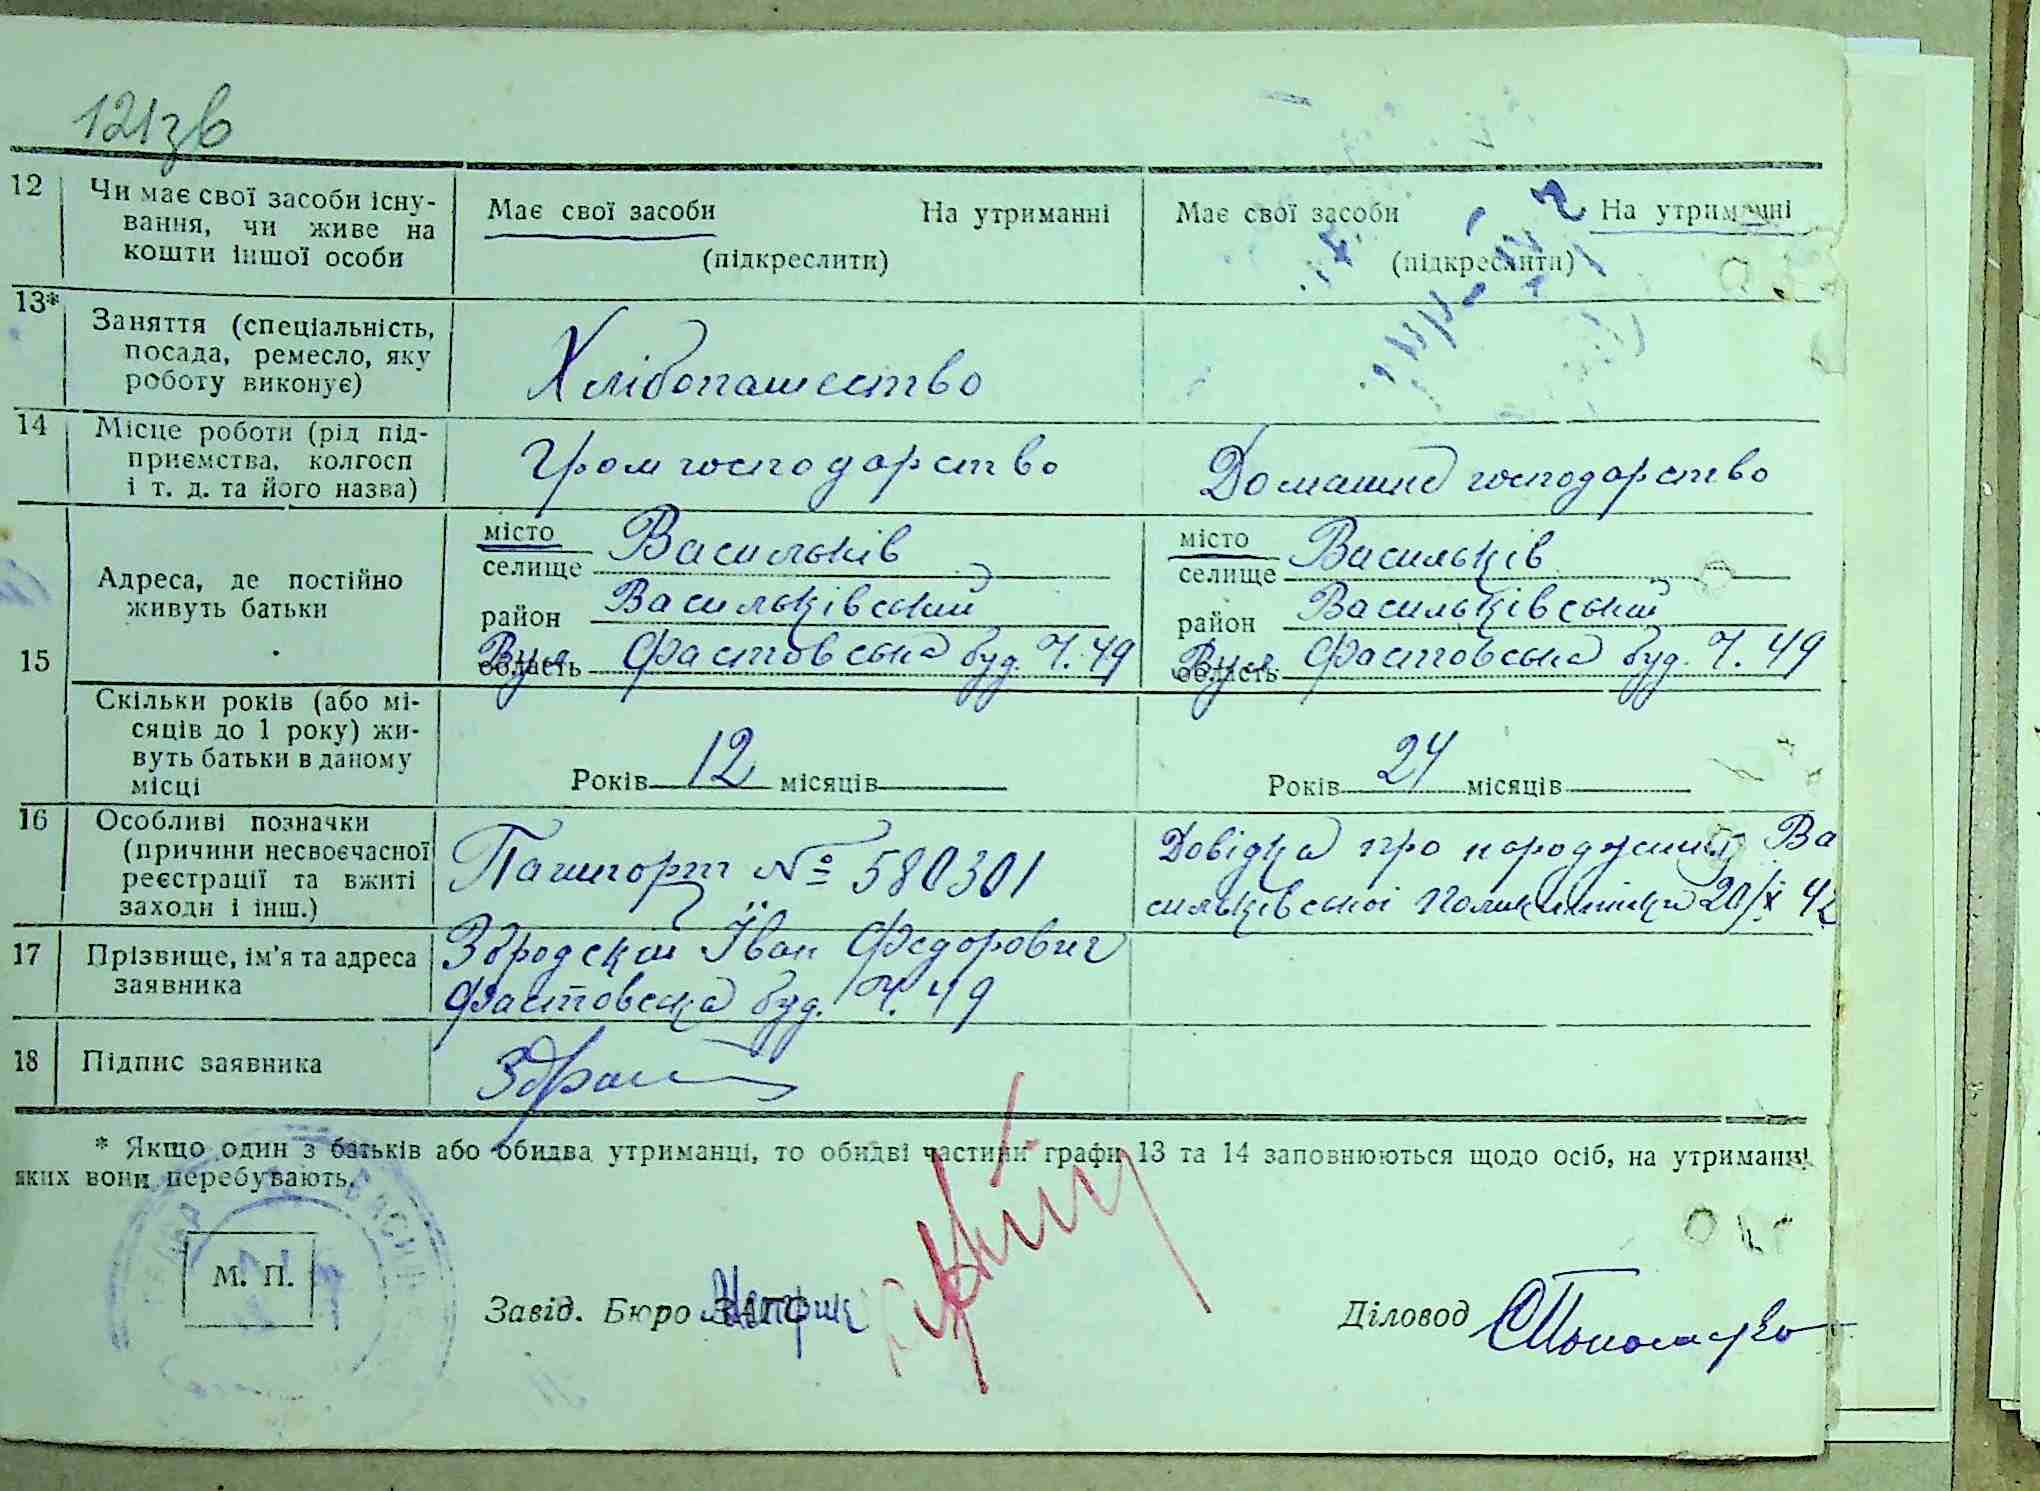 121зв
12 Чи має свої засоби існу-
вання, чи живе на
кошти іншої особи
Має свої засоби На утриманні
(підкреслити)
Має свої засоби На утриманні
(підкреслити)
13* Заняття (спеціальність,
посада, ремесло, яку
роботу виконує)
Хлібопашество
14 Місце роботи (рід під-
приємства, колгосп
і т. д. та його назва)
Громгосподарство
Домашнє господарство
15 Адреса, де постійно
живуть батьки
місто Васильків
селище
район Васильківський
область Вул. Фастовська буд. Ч. 49
місто Васильків
селище
район Васильківський
область Вул. Фастовська буд. Ч. 49
Скільки років (або мі-
сяців до 1 року) жи-
вуть батьки в даному
місці
Років 12 місяців
Років 24 місяців
16 Особливі позначки
(причини несвоєчасної
реєстрації та вжиті
заходи і інш.)
Пашпорт № 580301
Довідка про народження Ва
сильківської Поликлініки 20/X 42
17 Прізвище, ім'я та адреса
заявника
Збродский Іван Федорович
Фастовска буд. Ч. 49
18 Підпис заявника
* Якщо один з батьків або обидва утриманці, то обидві частини графи 13 та 14 заповнюються щодо осіб, на утриманні
яких вони перебувають.
М. П.
Завід. Бюро ЗАГС
Діловод